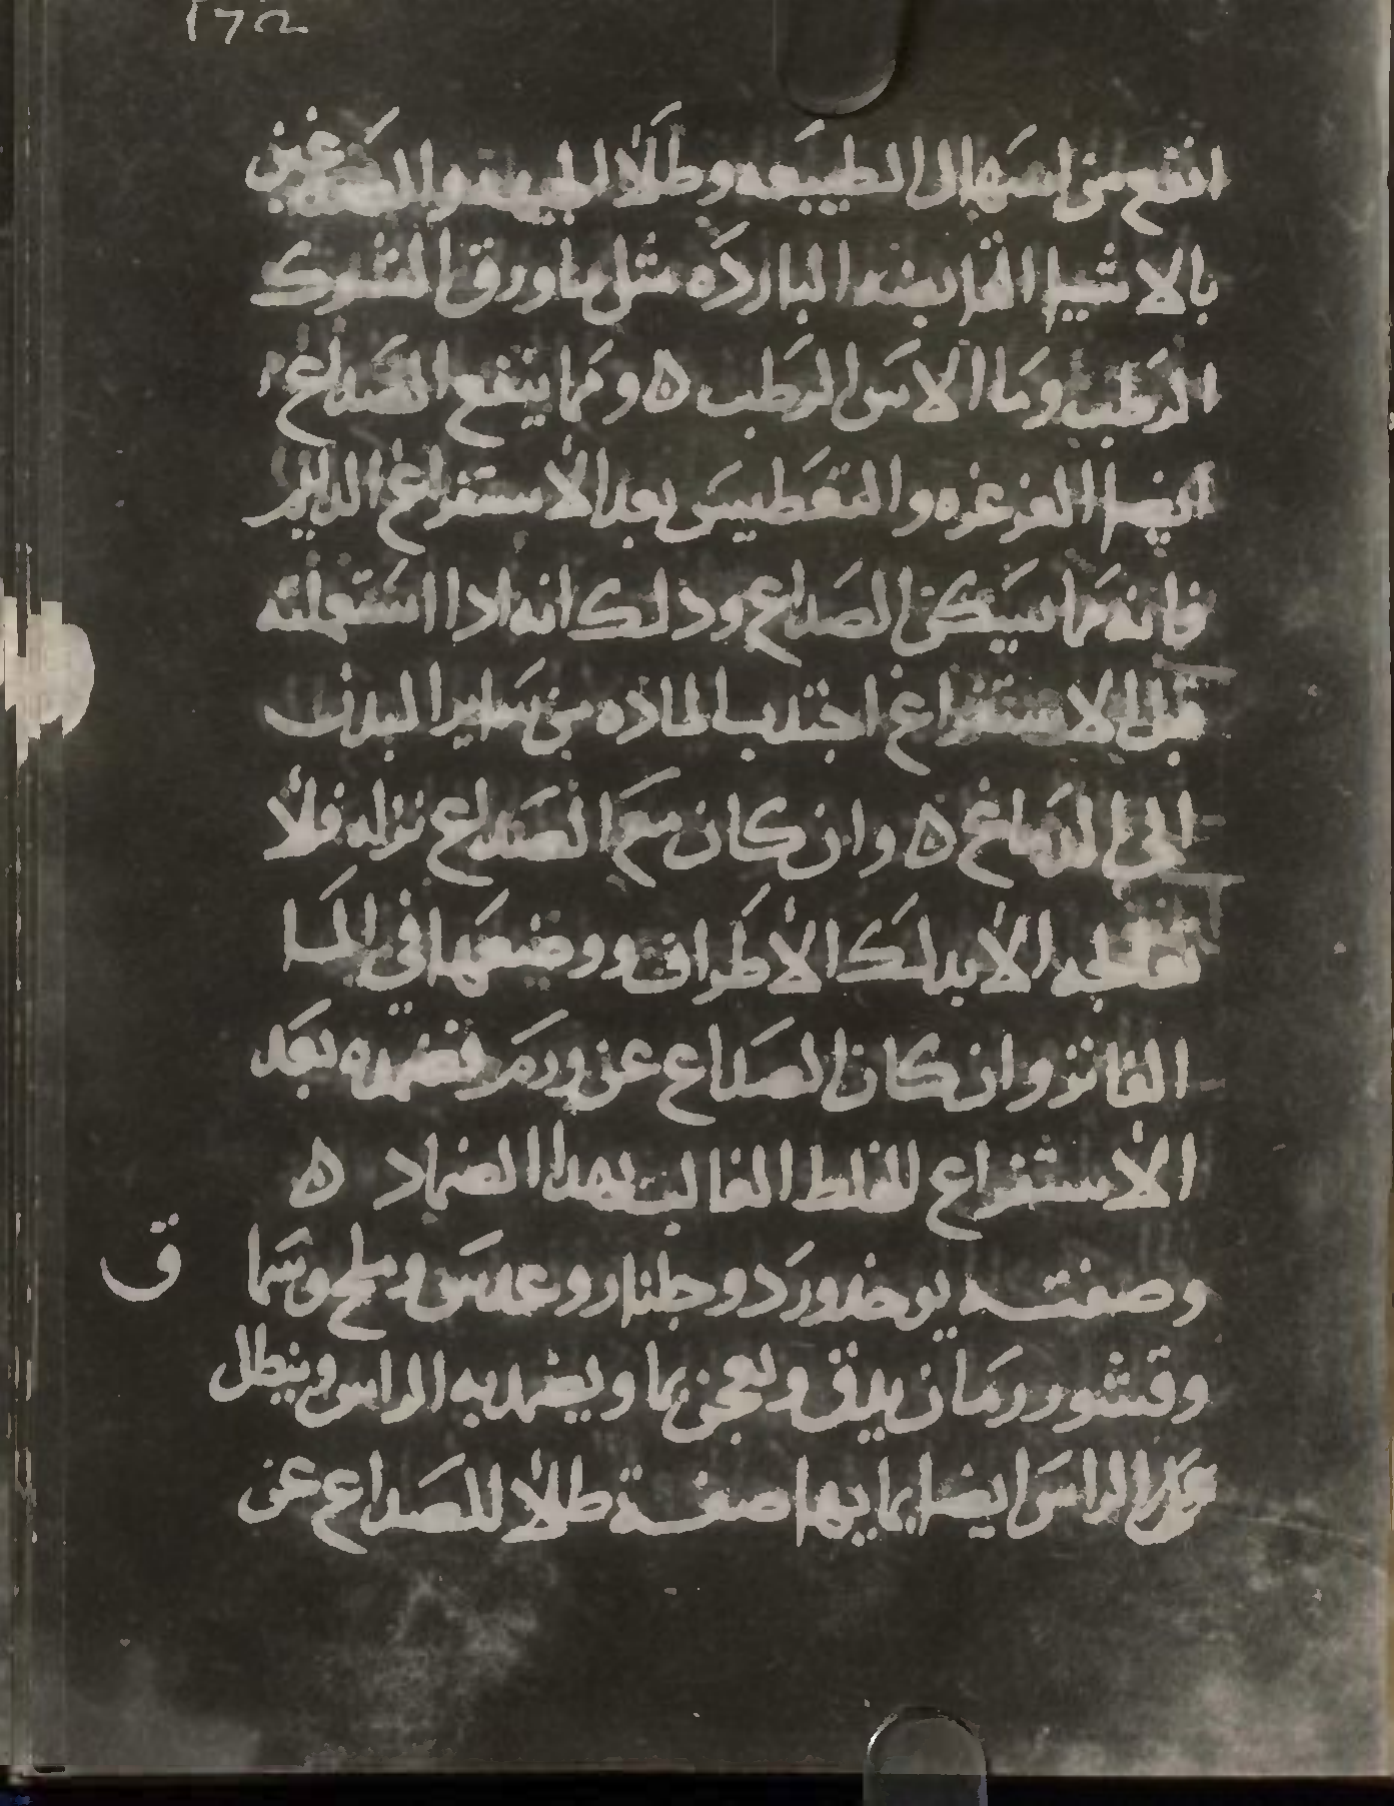 ١٦٥
انفع من اسهال الطبيعه وطلا الجبهه والصدغين
بالاشيا القابضه البارده مثل ما ورق الشوك
الرطب وما الاس الرطب ه ومما ينفع الصداع
ايضا الغرغره والتعطيس بعد الاستفراغ الدايم
فانه مما سيكن الصداع وذلك انه اذا استعملته
قبل الاستفراغ اجتذب الماده من ساير البدن
الى الدماغ ه وان كان مع الصداع نزله فلا
تعالجه الا بدلك الاطراف ووضعها في الما
الفاتر وان كان الصداع عن ورم فضمده بعد
الاستفراغ للغلط الغالب بهذا الضماد ه
وصفته يوخذ ورد وجلنار وعدس وملح وسما
ق
وقشور رمان يدق ويعجن بما ويضمد به الراس وينطل
على الراس ايضا بمايها صفة طلا للصداع عن